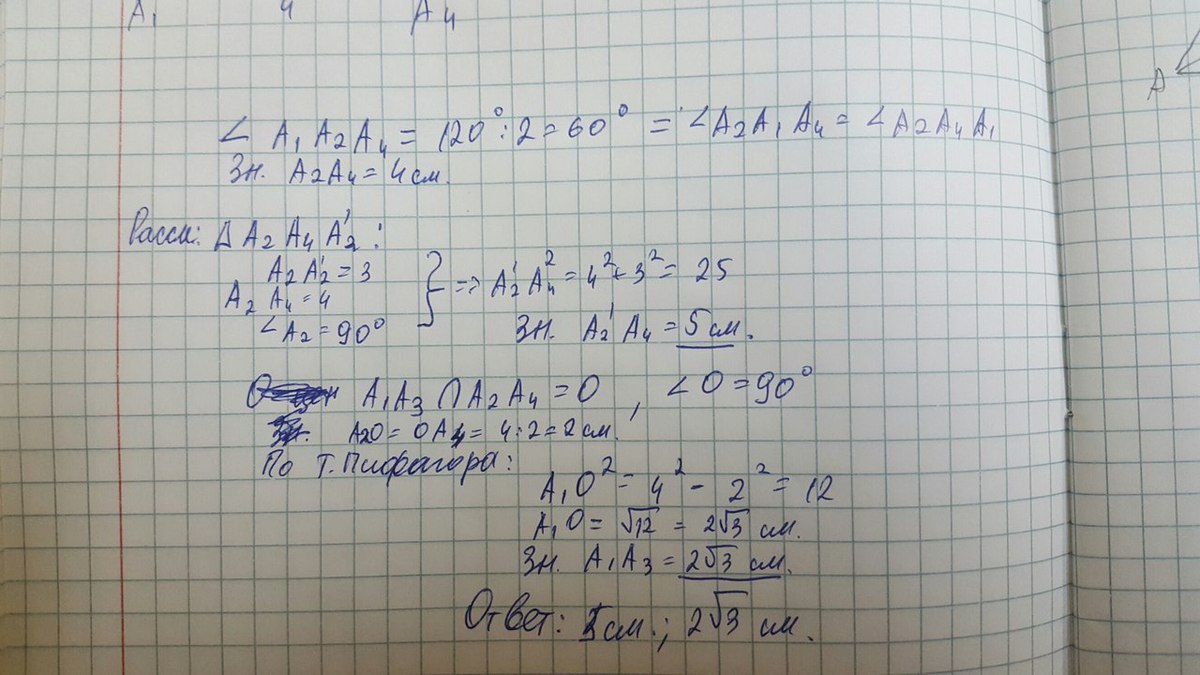 A₁ 4 A₄
A
∠ A₁A₂A₄ = 120°:2=60° = ∠A₂A₁A₄ = ∠A₂A₄A₁
Зн. A₂A₄ = 4 см.
Рассм: Δ A₂A₄A₂':
A₂A₂' = 3
A₂A₄ = 4
∠A₂ = 90°
} => A₂'A₄² = 4² + 3² = 25
Зн. A₂'A₄ = 5 см.
A₁A₃ ∩ A₂A₄ = O, ∠O = 90°
A₂O = OA₄ = 4:2=2 см.
По т. Пифагора:
A₁O² = 4² - 2² = 12
A₁O = √12 = 2√3 см.
Зн. A₁A₃ = 2√3 см.
Ответ: 5 см.; 2√3 см.